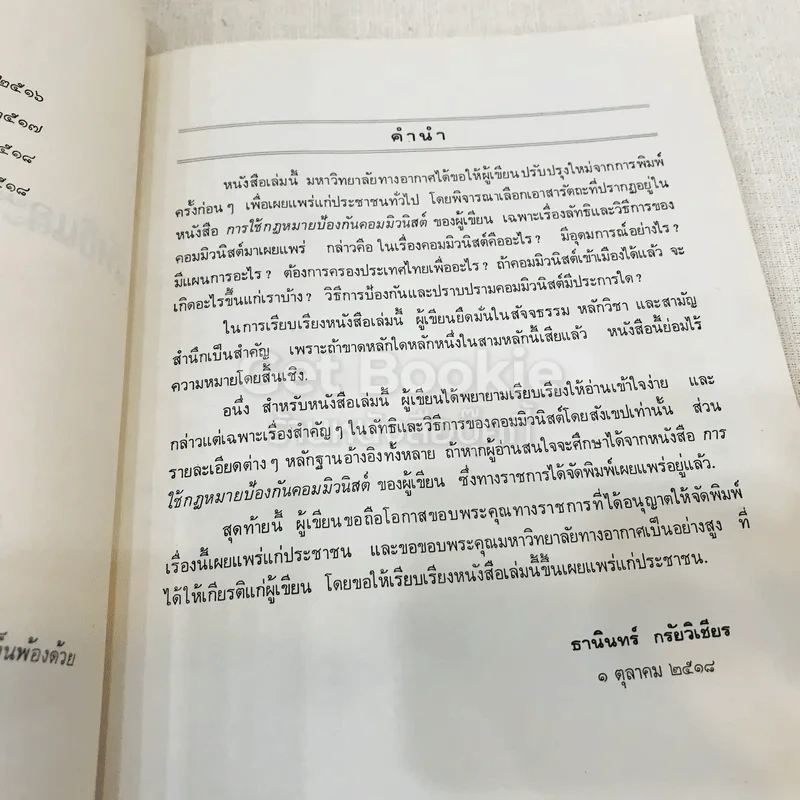 ๒๕๑๖
๒๕๑๗
๒๕๑๘
๒๕๑๘
คำนำ
หนังสือเล่มนี้ มหาวิทยาลัยทางอากาศได้ขอให้ผู้เขียนปรับปรุงใหม่จากการพิมพ์
ครั้งก่อนๆ เพื่อเผยแพร่แก่ประชาชนทั่วไป โดยพิจารณาเลือกเอาสารัตถะที่ปรากฏอยู่ใน
หนังสือ การใช้กฎหมายป้องกันคอมมิวนิสต์ ของผู้เขียน เฉพาะเรื่องลัทธิและวิธีการของ
คอมมิวนิสต์มาเผยแพร่ กล่าวคือ ในเรื่องคอมมิวนิสต์คืออะไร? มีอุดมการณ์อย่างไร?
มีแผนการอะไร? ต้องการครองประเทศไทยเพื่ออะไร? ถ้าคอมมิวนิสต์เข้าเมืองได้แล้ว จะ
เกิดอะไรขึ้นแก่เราบ้าง? วิธีการป้องกันและปราบปรามคอมมิวนิสต์มีประการใด?
ในการเรียบเรียงหนังสือเล่มนี้ ผู้เขียนยึดมั่นในสัจจธรรม หลักวิชา และสามัญ
สำนึกเป็นสำคัญ เพราะถ้าขาดหลักใดหลักหนึ่งในสามหลักนี้เสียแล้ว หนังสือนี้ย่อมไร้
ความหมายโดยสิ้นเชิง.
Get Bookie
อนึ่ง สำหรับหนังสือเล่มนี้ ผู้เขียนได้พยายามเรียบเรียงให้อ่านเข้าใจง่าย และ
กล่าวแต่เฉพาะเรื่องสำคัญๆ ในลัทธิและวิธีการของคอมมิวนิสต์โดยสังเขปเท่านั้น ส่วน
รายละเอียดต่างๆ หลักฐานอ้างอิงทั้งหลาย ถ้าหากผู้อ่านสนใจจะศึกษาได้จากหนังสือ การ
ใช้กฎหมายป้องกันคอมมิวนิสต์ ของผู้เขียน ซึ่งทางราชการได้จัดพิมพ์เผยแพร่อยู่แล้ว.
สุดท้ายนี้ ผู้เขียนขอถือโอกาสขอบพระคุณทางราชการที่ได้อนุญาตให้จัดพิมพ์
เรื่องนี้เผยแพร่แก่ประชาชน และขอขอบพระคุณมหาวิทยาลัยทางอากาศเป็นอย่างสูง ที่
ได้ให้เกียรติแก่ผู้เขียน โดยขอให้เรียบเรียงหนังสือเล่มนี้ขึ้นเผยแพร่แก่ประชาชน.
ธานินทร์ กรัยวิเชียร
๑ ตุลาคม ๒๕๑๘
็นพ้องด้วย